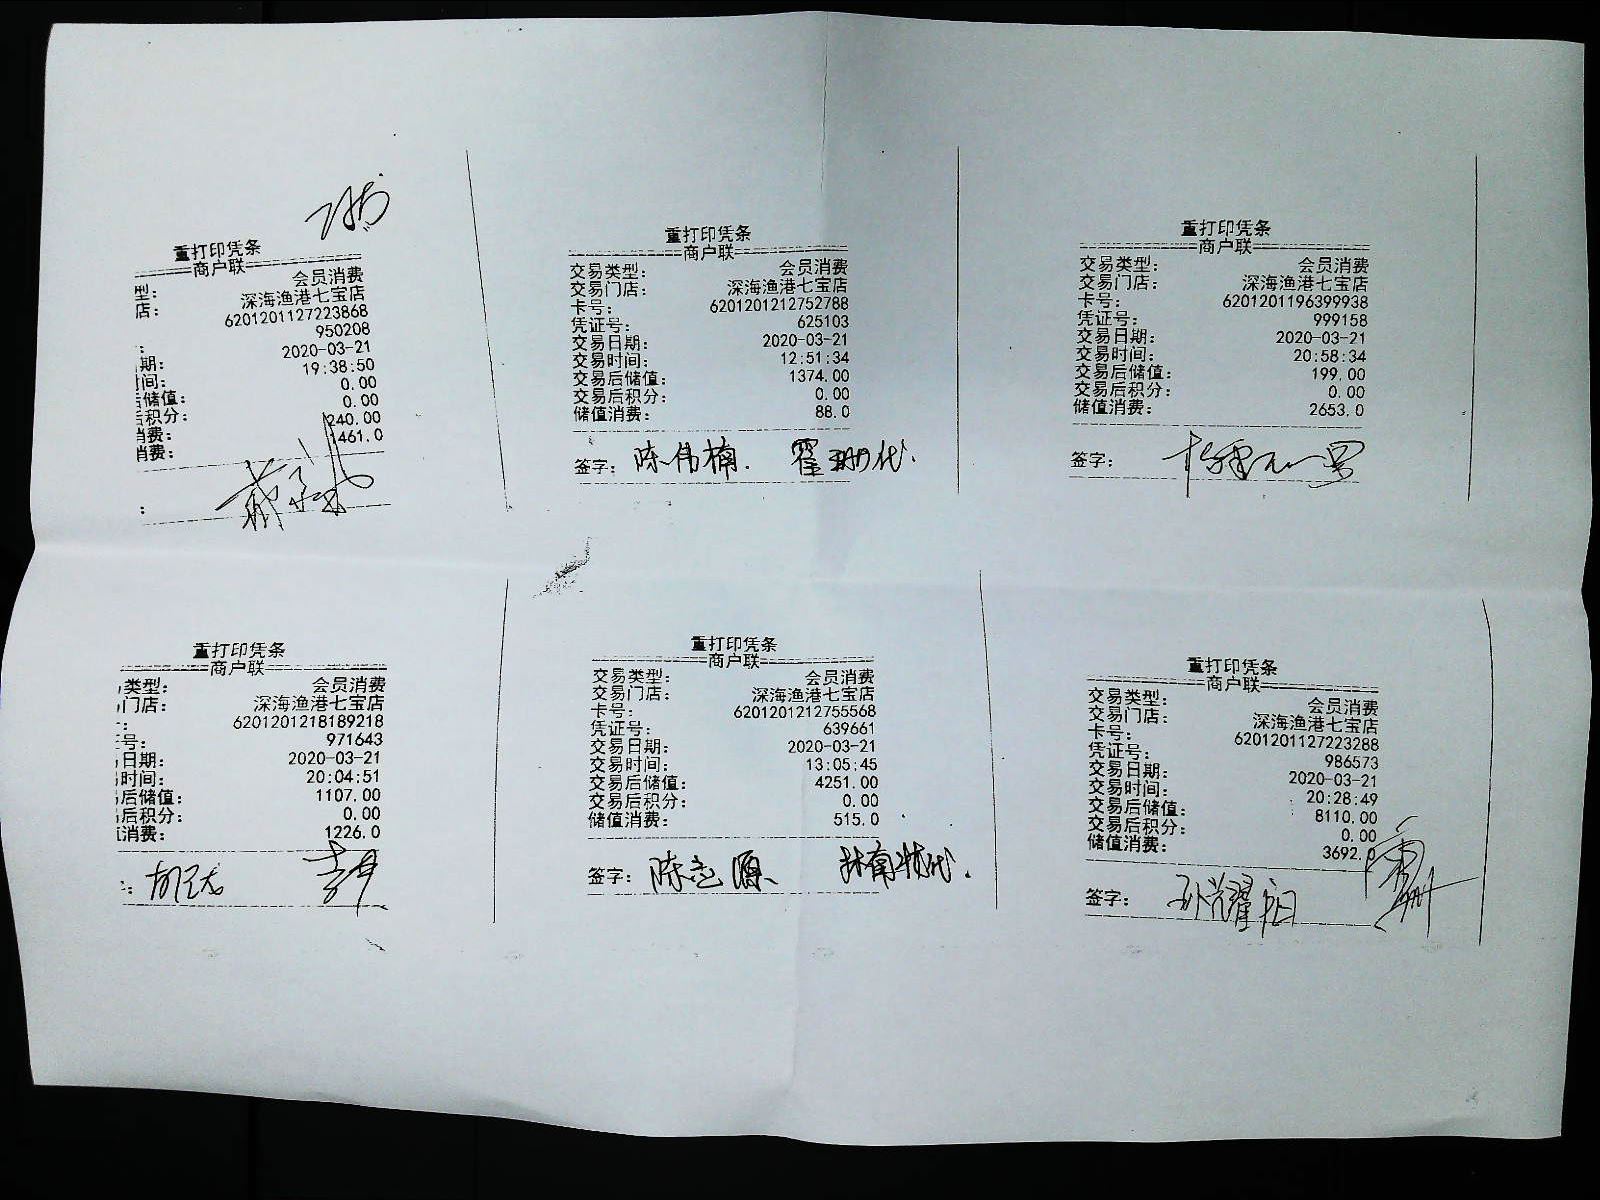 重打印凭条
商户联
型： 会员消费
店： 深海渔港七宝店
6201201127223868
： 950208
期： 2020-03-21
时间： 19:38:50
储值： 0.00
后积分： 0.00
消费： 240.00
消费： 1461.0
：
重打印凭条
商户联
交易类型： 会员消费
交易门店： 深海渔港七宝店
卡号： 6201201212752788
凭证号： 625103
交易日期： 2020-03-21
交易时间： 12:51:34
交易后储值： 1374.00
交易后积分： 0.00
储值消费： 88.0
签字： 陈伟楠. 霍珊代.
重打印凭条
商户联
交易类型： 会员消费
交易门店： 深海渔港七宝店
卡号： 6201201196399938
凭证号： 999158
交易日期： 2020-03-21
交易时间： 20:58:34
交易后储值： 199.00
交易后积分： 0.00
储值消费： 2653.0
签字：
重打印凭条
商户联
类型： 会员消费
门店： 深海渔港七宝店
： 6201201218189218
号： 971643
日期： 2020-03-21
时间： 20:04:51
后储值： 1107.00
后积分： 0.00
消费： 1226.0
：
重打印凭条
商户联
交易类型： 会员消费
交易门店： 深海渔港七宝店
卡号： 6201201212755568
凭证号： 639661
交易日期： 2020-03-21
交易时间： 13:05:45
交易后储值： 4251.00
交易后积分： 0.00
储值消费： 515.0
签字： 陈志源
重打印凭条
商户联
交易类型： 会员消费
交易门店： 深海渔港七宝店
卡号： 6201201127223288
凭证号： 986573
交易日期： 2020-03-21
交易时间： 20:28:49
交易后储值： 8110.00
交易后积分： 0.00
储值消费： 3692.0
签字： 孙耀